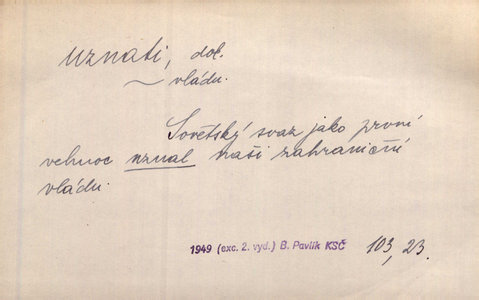 uznati, dok.
~ vládu.
Sovětský svaz jako první
velmoc uznal naši zahraniční
vládu.
1949 (exc. 2. vyd.) B. Pavlík KSČ 103, 23.